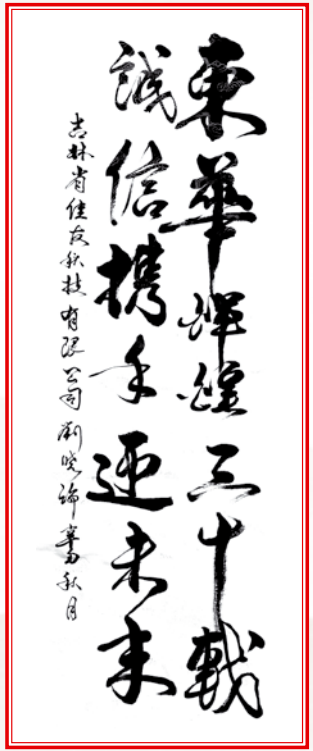 東華輝煌三十載
誠信携手迎未来
吉林省佳友科技有限公司 劉曉 秋月